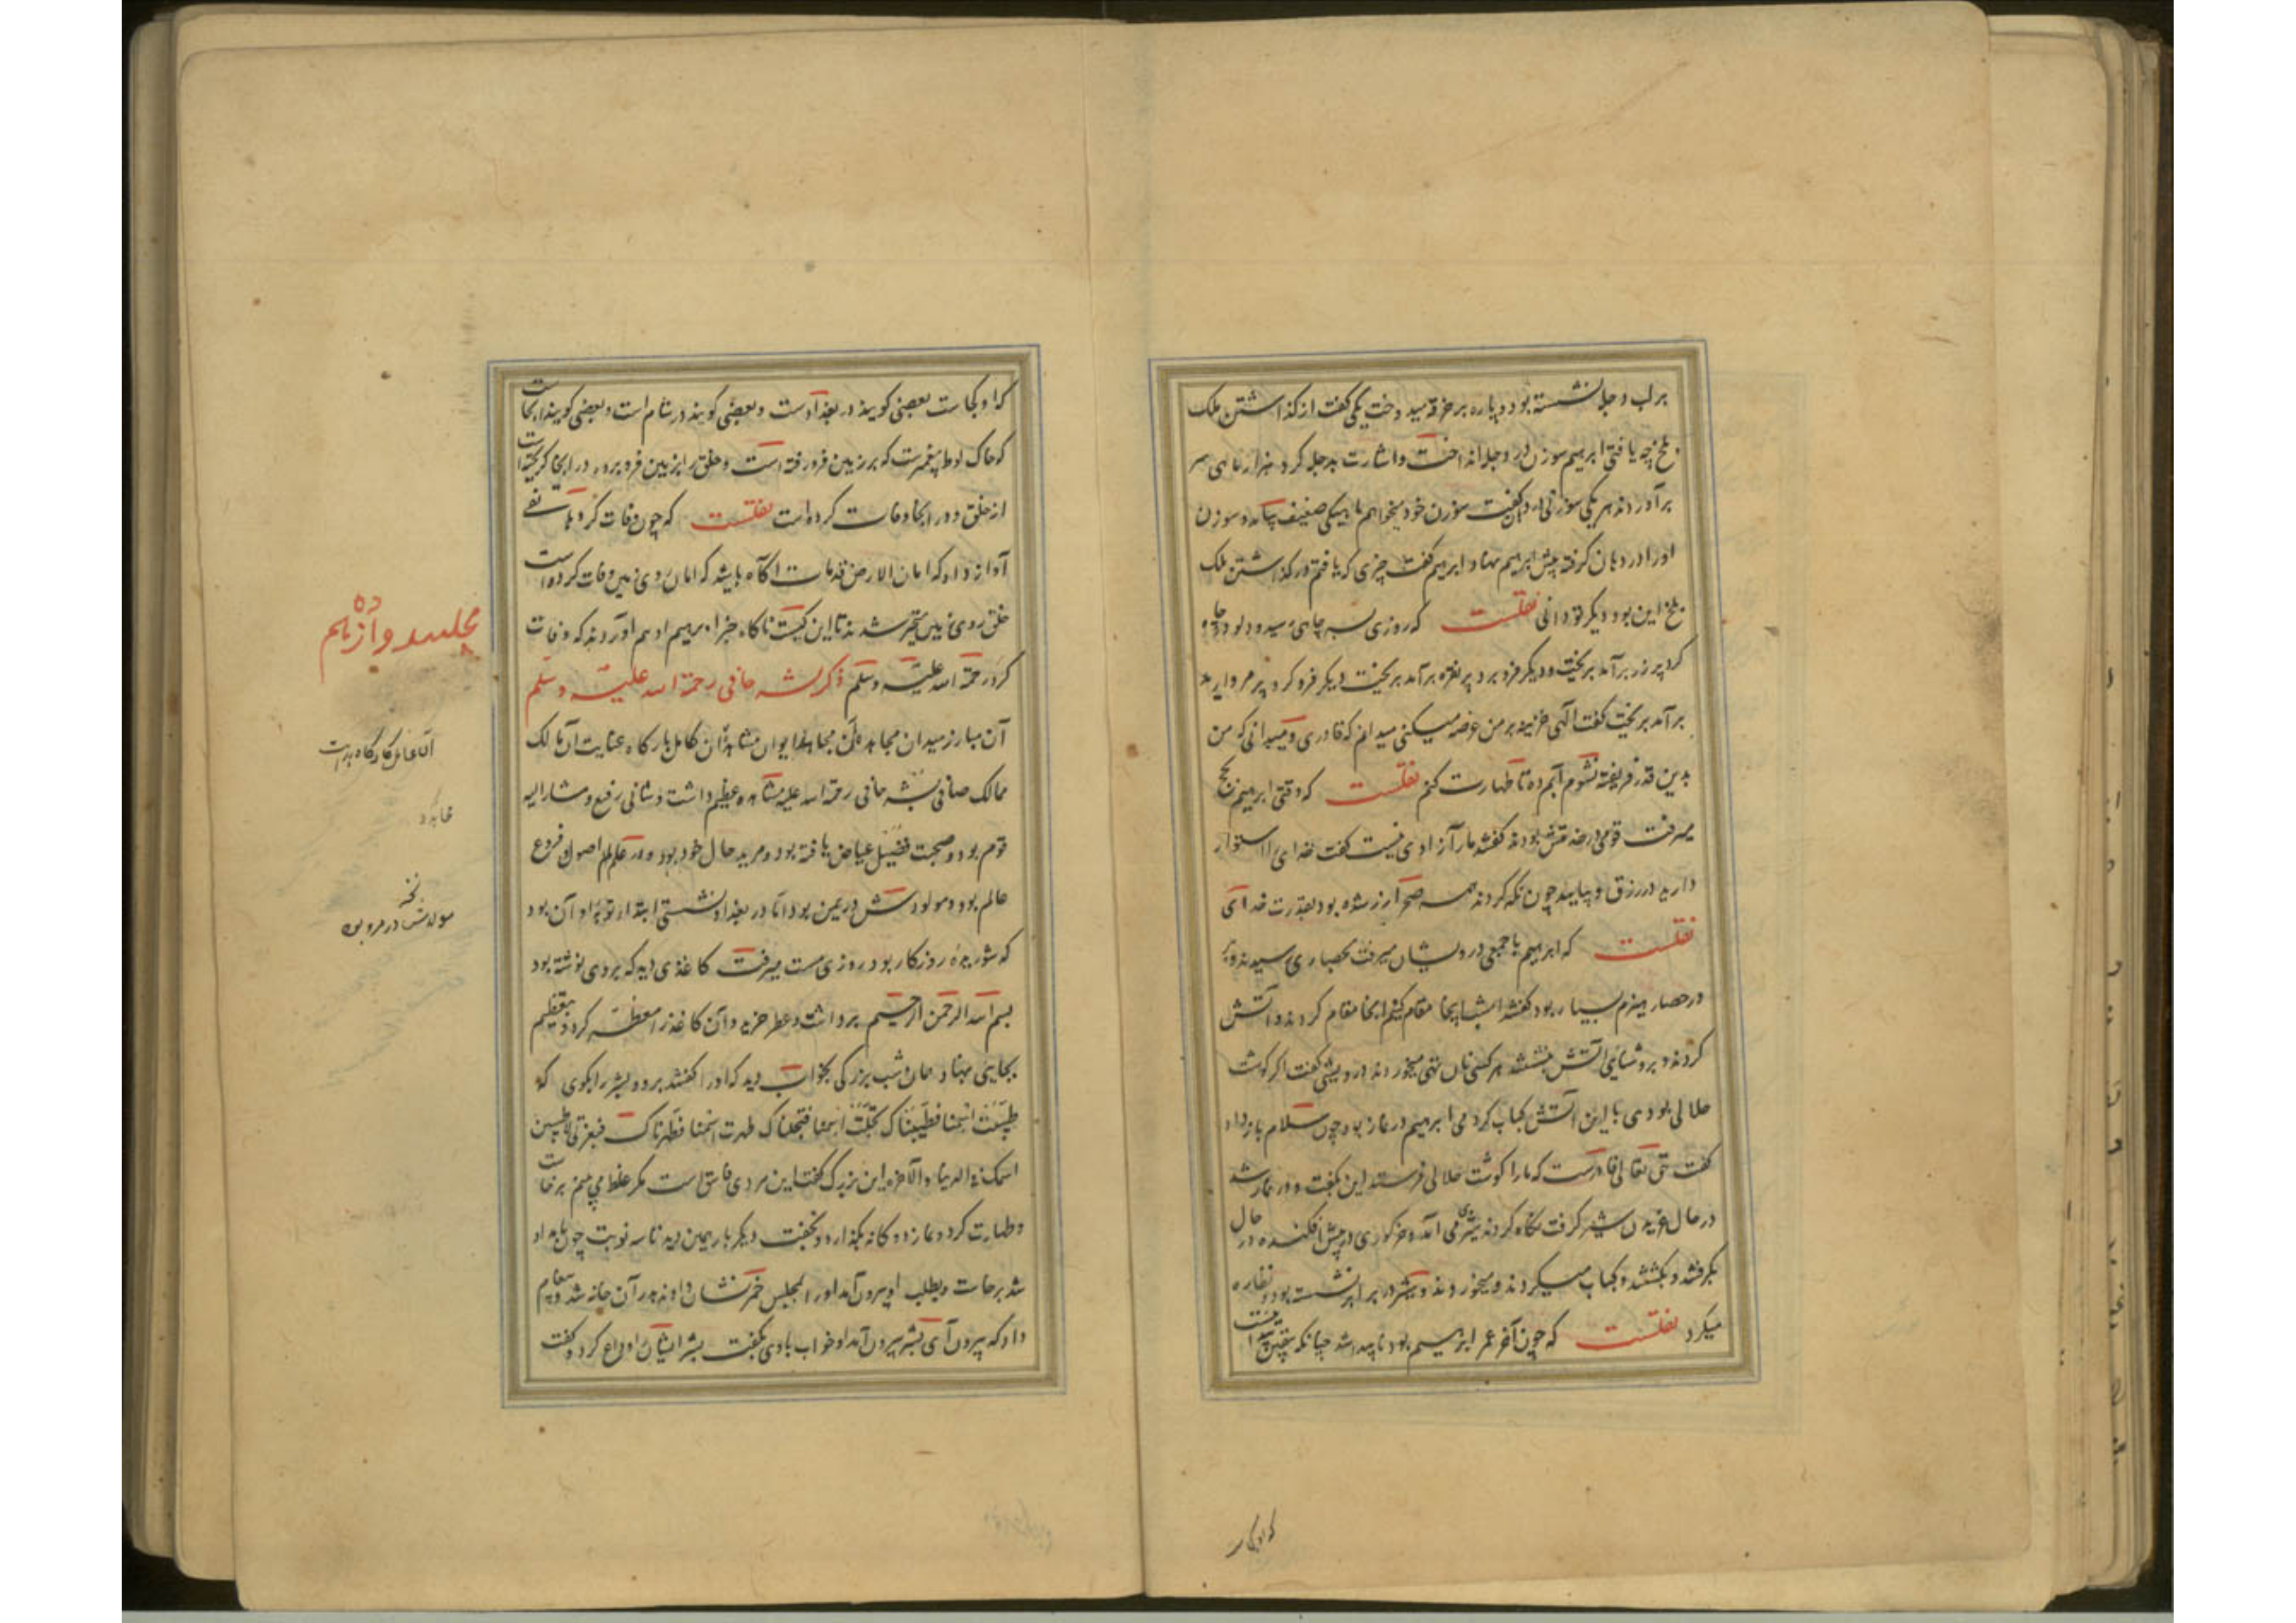 بر لب دجله نشسته بود و پاره بر خرقه میدوخت یکی گفت از گذاشتن ملک
بلخ چه یافتی ابرهیم سوزن در دجله انداخت و اشارت بدجله کرد هزار ماهی سر
برآوردند هر یکی سوزنی گفت سوزن خود میخواهم ماهیکی ضعیف بیامد و سوزن
او را در دهان گرفته پیش ابرهیم نهاد ابرهیم گفت چیزی که یافتم در گذاشتن ملک
بلخ این بود دیگر تو دانی نقلست که روزی بسر چاهی رسید و دلو در چاه
کرد پر زر برآمد بریخت و دیگر فرو برد پر نقره برآمد بریخت دیگر فرو کرد پر مروارید
برآمد بریخت گفت الهی خزینه بر من عرضه میکنی میدانم که قادری و میدانی که من
بدین قدر فریفته نشوم آبم ده تا طهارت کنم نقلست که وقتی ابرهیم بحج
میرفت قومی در خدمتش بودند گفتند ما را زادی نیست گفت خدای را استوار
دارید در رزق و بیایید چون نگه کردند همه صحرا زر شده بود بقدرت خدای
نقلست که ابرهیم با جمعی درویشان میرفت بحصاری رسیدند و بر
در حصار هیزم بسیار بود گفتند امشب اینجا مقام کنیم اینجا مقام کردند و آتش
کردند و بروشنایی آتش بنشستند هر کسی نان تهی میخوردند درویشی گفت اگر گوشت
حلالی بودی با این آتش کباب کردمی ابرهیم در نماز بود چون سلام باز داد
گفت حق تعالی قادرست که ما را گوشت حلالی فرستد این بگفت و در نماز شد
در حال غریدن شیر گرفت نگاه کردند شیری می آمد و خرگوری در پیش افکنده در حال
بگرفتند و بکشتند و کباب میکردند و میخوردند و شیر در برابر نشسته بود و نظاره
میکرد نقلست که چون آخر عمر ابرهیم بود ناپیدا شد چنانکه بتعیین پیدا نیست
که او کجاست
که او کجاست بعضی گویند در بغدادست و بعضی گویند در شام است و بعضی گویند آنجاست
که خاک لوط پیغمبرست که بر زمین فرو رفته است و خلق را بزمین فرو برده در آنجا گریخته است
از خلق و در آنجا وفات کرده است نقلست که چون وفات کرد هاتفی
آواز داد که امان الارض قد مات آگاه باشید که امان روی زمین وفات کرده است
خلق روی زمین متحیر شدند تا این کیست ناگاه خبر ابرهیم ادهم آوردند که وفات
کرد رحمة الله علیه وسلم ذکر بشر حافی رحمة الله علیه وسلم
آن مبارز میدان مجاهده آن مجاهد ایوان مشاهده آن کامل بارگاه عنایت آن مالک
ممالک صافی بشر حافی رحمة الله علیه مشاهده عظیم داشت و شانی رفیع و مشارالیه
قوم بود و صحبت فضیل عیاض یافته بود و مرید خال خود بود و در علم اصول و فروع
عالم بود و مولودش در یمن بود اما در بغداد نشستی ابتدا توبه او آن بود
که شوریده روزگار بود روزی مست میرفت کاغذی دید که بر وی نوشته بود
بسم الله الرحمن الرحیم برداشت و عطر خرید و آن کاغذ را معطر کرد و بتعظیم
بجایی نهاد همان شب بزرگی بخواب دید که او را گفتند برو و بشر را بگوی که
طیبت اسمنا فطیبناک بجلت اسمنا فبجلناک طهرت اسمنا فطهرناک فبعزتی لاطیبن
اسمک فی الدنیا والآخرة این بزرگ گفت این مردی فاسق است مگر غلط می بینم برخاست
و طهارت کرد و نماز دوگانه بگذارد و بخفت دیگر بار همین دید تا سه نوبت چون بامداد
شد برخاست و بطلب او بیرون آمد او را بمجلس خمر نشان دادند بدر آن خانه شد و پیغام
داد که بیرون آی بشر بیرون آمد او خواب با وی بگفت بشر ایشان را وداع کرد و گفت
مجلس دوازدهم
آن عامل کارگاه هدایت
نسخه
مولدش در مرو بود